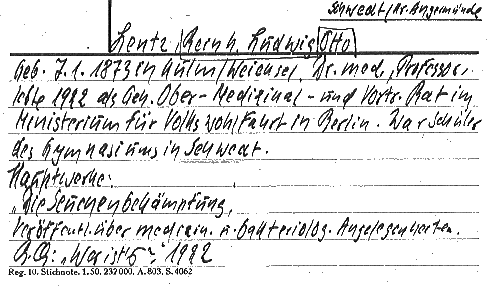 Schwedt/Kr. Angermünde
Lentz, Bernh. Ludwig Otto
Geb. 7.1.1873 in Kulm/Weichsel, Dr. med., Professor,
lebte 1922 als Geh. Ober-Medizinal- und Vortr. Rat im
Ministerium für Volkswohlfahrt in Berlin. War Schüler
des Gymnasiums in Schwedt.
Hauptwerke:
„Die Seuchenbekämpfung,
Veröffentl. über medizin. u. bakteriolog. Angelegenheiten.
„Wer ist's" 1922
Reg. 10. Stichnote. 1. 50. 232000. A. 803. S. 4062